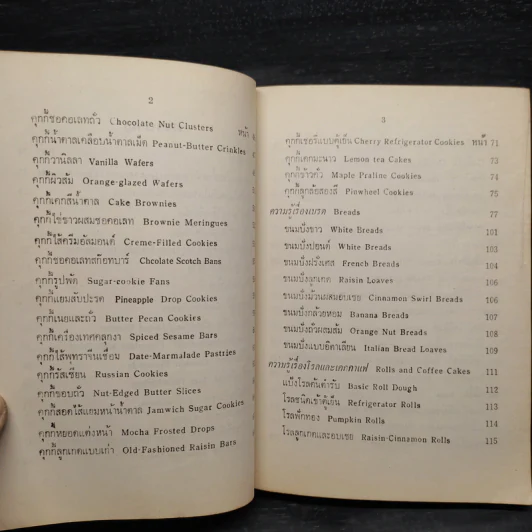 2
คุกกี้ชอคอเลทถั่ว Chocolate Nut Clusters หน้า
คุกกี้น้ำตาลเคลือบน้ำตาลเม็ด Peanut-Butter Crinkles
คุกกี้วานิลลา Vanilla Wafers
คุกกี้ผิวส้ม Orange-glazed Wafers
คุกกี้เคกสีน้ำตาล Cake Brownies
คุกกี้ไข่ขาวผสมชอคอเลท Brownie Meringues
คุกกี้ไส้ครีมอัลมอนด์ Creme-Filled Cookies
คุกกี้ชอคอเลทสก๊อทบาร์ Chcolate Scotch Bans
คุกกี้รูปพัด Sugar-cookie Fans
คุกกี้แยมสับปะรด Pineapple Drop Cookies
คุกกี้เนยและถั่ว Butter Pecan Cookies
คุกกี้เครื่องเทศคลุกงา Spiced Sesame Bars
คุกกี้ไส้พุทราจีนเชื่อม Date-Marmalade Pastries
คุกกี้รัสเซียน Russian Cookies
คุกกี้ขอบถั่ว Nut-Edged Butter Slices
คุกกี้สอดไส้แยมหน้าน้ำตาล Jamwich Sugar Cookies
คุกกี้หยอดแต่งหน้า Mocha Frosted Drops
คุกกี้ลูกเกดแบบเก่า Old-Fashioned Raisin Bars
3
คุกกี้เชอรี่แบบตู้เย็น Cherry Refrigerator Cookies หน้า 71
คุกกี้เคกมะนาว Lemon tea Cakes 73
คุกกี้ข้าวคั่ว Maple Praline Cookies 74
คุกกี้ลูกล้อสองสี Pinwheel Cookies 75
ความรู้เรื่องเบรด Breads 77
ขนมปังขาว White Breads 101
ขนมปังปอนด์ White Breads 103
ขนมปังฝรั่งเศส French Breads 104
ขนมปังลูกเกด Raisin Loaves 106
ขนมปังม้วนผสมอบเชย Cinnamon Swirl Breads 106
ขนมปังกล้วยหอม Banana Breads 107
ขนมปังถั่วผสมส้ม Orange Nut Breads 108
ขนมปังแบบอิตาเลียน Italian Bread Loaves 109
ความรู้เรื่องโรลและเคกกาแฟ Rolls and Coffee Cakes 111
แป้งโรลต้นตำรับ Basic Roll Dough 112
โรลชนิดเข้าตู้เย็น Refrigerator Rolls 113
โรลฟักทอง Pumpkin Rolls 114
โรลลูกเกดและอบเชย Raisin-Cinnamon Rolls 115